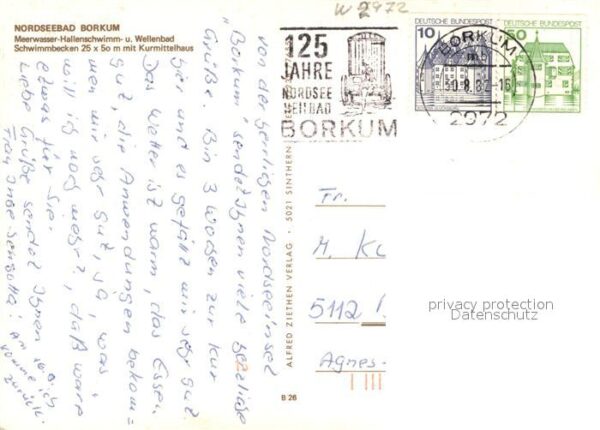 W 2972
NORDSEEBAD BORKUM
Meerwasser-Hallenschwimm- u. Wellenbad
Schwimmbecken 25 x 50 m mit Kurmittelhaus
von der herrlichen Nordseeinsel
"Borkum" sendet Ihnen viele herzliche
Grüße. Bin 3 Wochen zur Kur
hier und es gefällt mir sehr gut.
Das Wetter ist warm, das Essen
gut, die Anwendungen bekom=
men mir sehr gut, ja, was
will ich noch mehr?, daß wäre
etwas für Sie.
Liebe Grüße sendet Ihnen
Frau Inge
Am 10. ich
komme
zurück.
125
JAHRE
NORDSEE
HEILBAD
BORKUM
DEUTSCHE BUNDESPOST
10
DEUTSCHE BUNDESPOST
50
BORKUM 1
30.8.82-16
2972
ALFRED ZIETHEN VERLAG · 5021 SINTHERN
B 26
Fr.
M. Kl
5112
Agnes-
privacy protection
Datenschutz